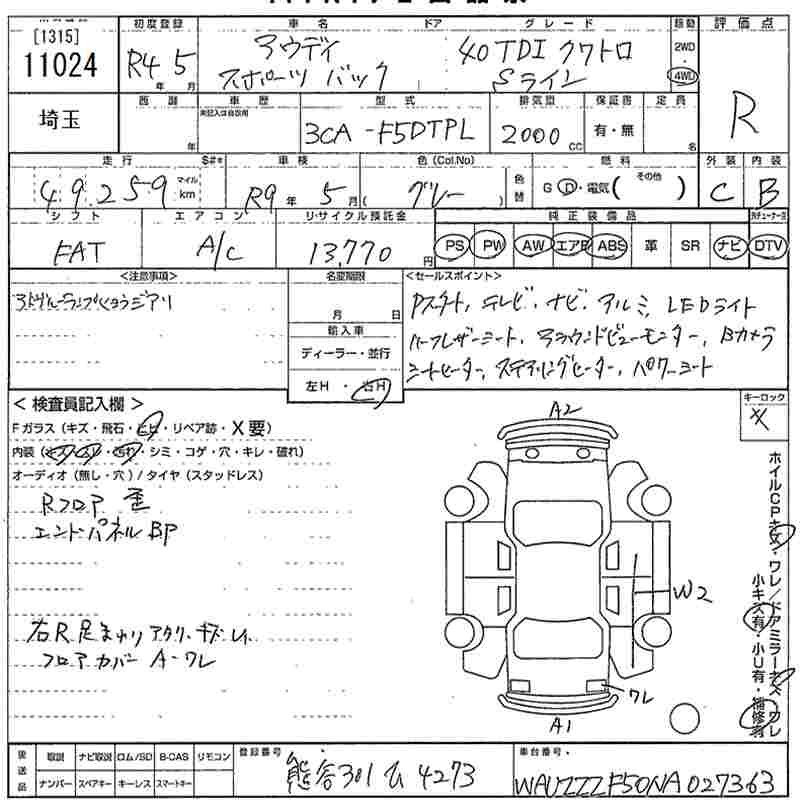 [1315]
11024
初度登録
R4年5月
車名
アウディ
スポーツバック
ドア
グレード
40TDIクワトロ
Sライン
駆動
2WD
4WD
評価点
R
埼玉
西暦
年
車歴
未記入は自家用
型式
3CA-F5DTPL
排気量
2000cc
保証書
有・無
定員
名
走行
49259
マイル
km
S#*
車検
R9年5月
色(Col.No)
(グレー)
色替
燃料
G D・電気(その他)
外装
C
内装
B
シフト
FAT
エアコン
A/C
リサイクル預託金
13,770円
純正装備品
PS PW AW エアB ABS 革 SR ナビ DTV
<注意事項>
アドブルーランプ
名変期限
月 日
輸入車
ディーラー・並行
左H・右H
<セールスポイント>
Pスタート, テレビ, ナビ, アルミ, LEDライト
ハーフレザーシート, アラウンドビューモニター, Bカメラ
シートヒーター, ステアリングヒーター, パワーシート
<検査員記入欄>
Fガラス(キズ・飛石・ヒビ・リペア跡・X要)
内装(キズ・スレ・汚れ・シミ・コゲ・穴・キレ・破れ)
オーディオ(無し・穴)/タイヤ(スタッドレス)
Rフロア 歪
エンドパネルBP
右R足まわりアタリ・キズ・
フロアカバー A-ワレ
A2
W2
ワレ
A1
キーロック
ホイルCPキズ・ワレ/ドアミラーキズ・ワレ
小キズ有・小U有・補修有
後送品
取説 ナビ取説 ロム/SD B-CAS リモコン
ナンバー スペアキー キーレス スマートキー
登録番号
熊谷301 ム 4273
車台番号
WAUZZZF50NA027363